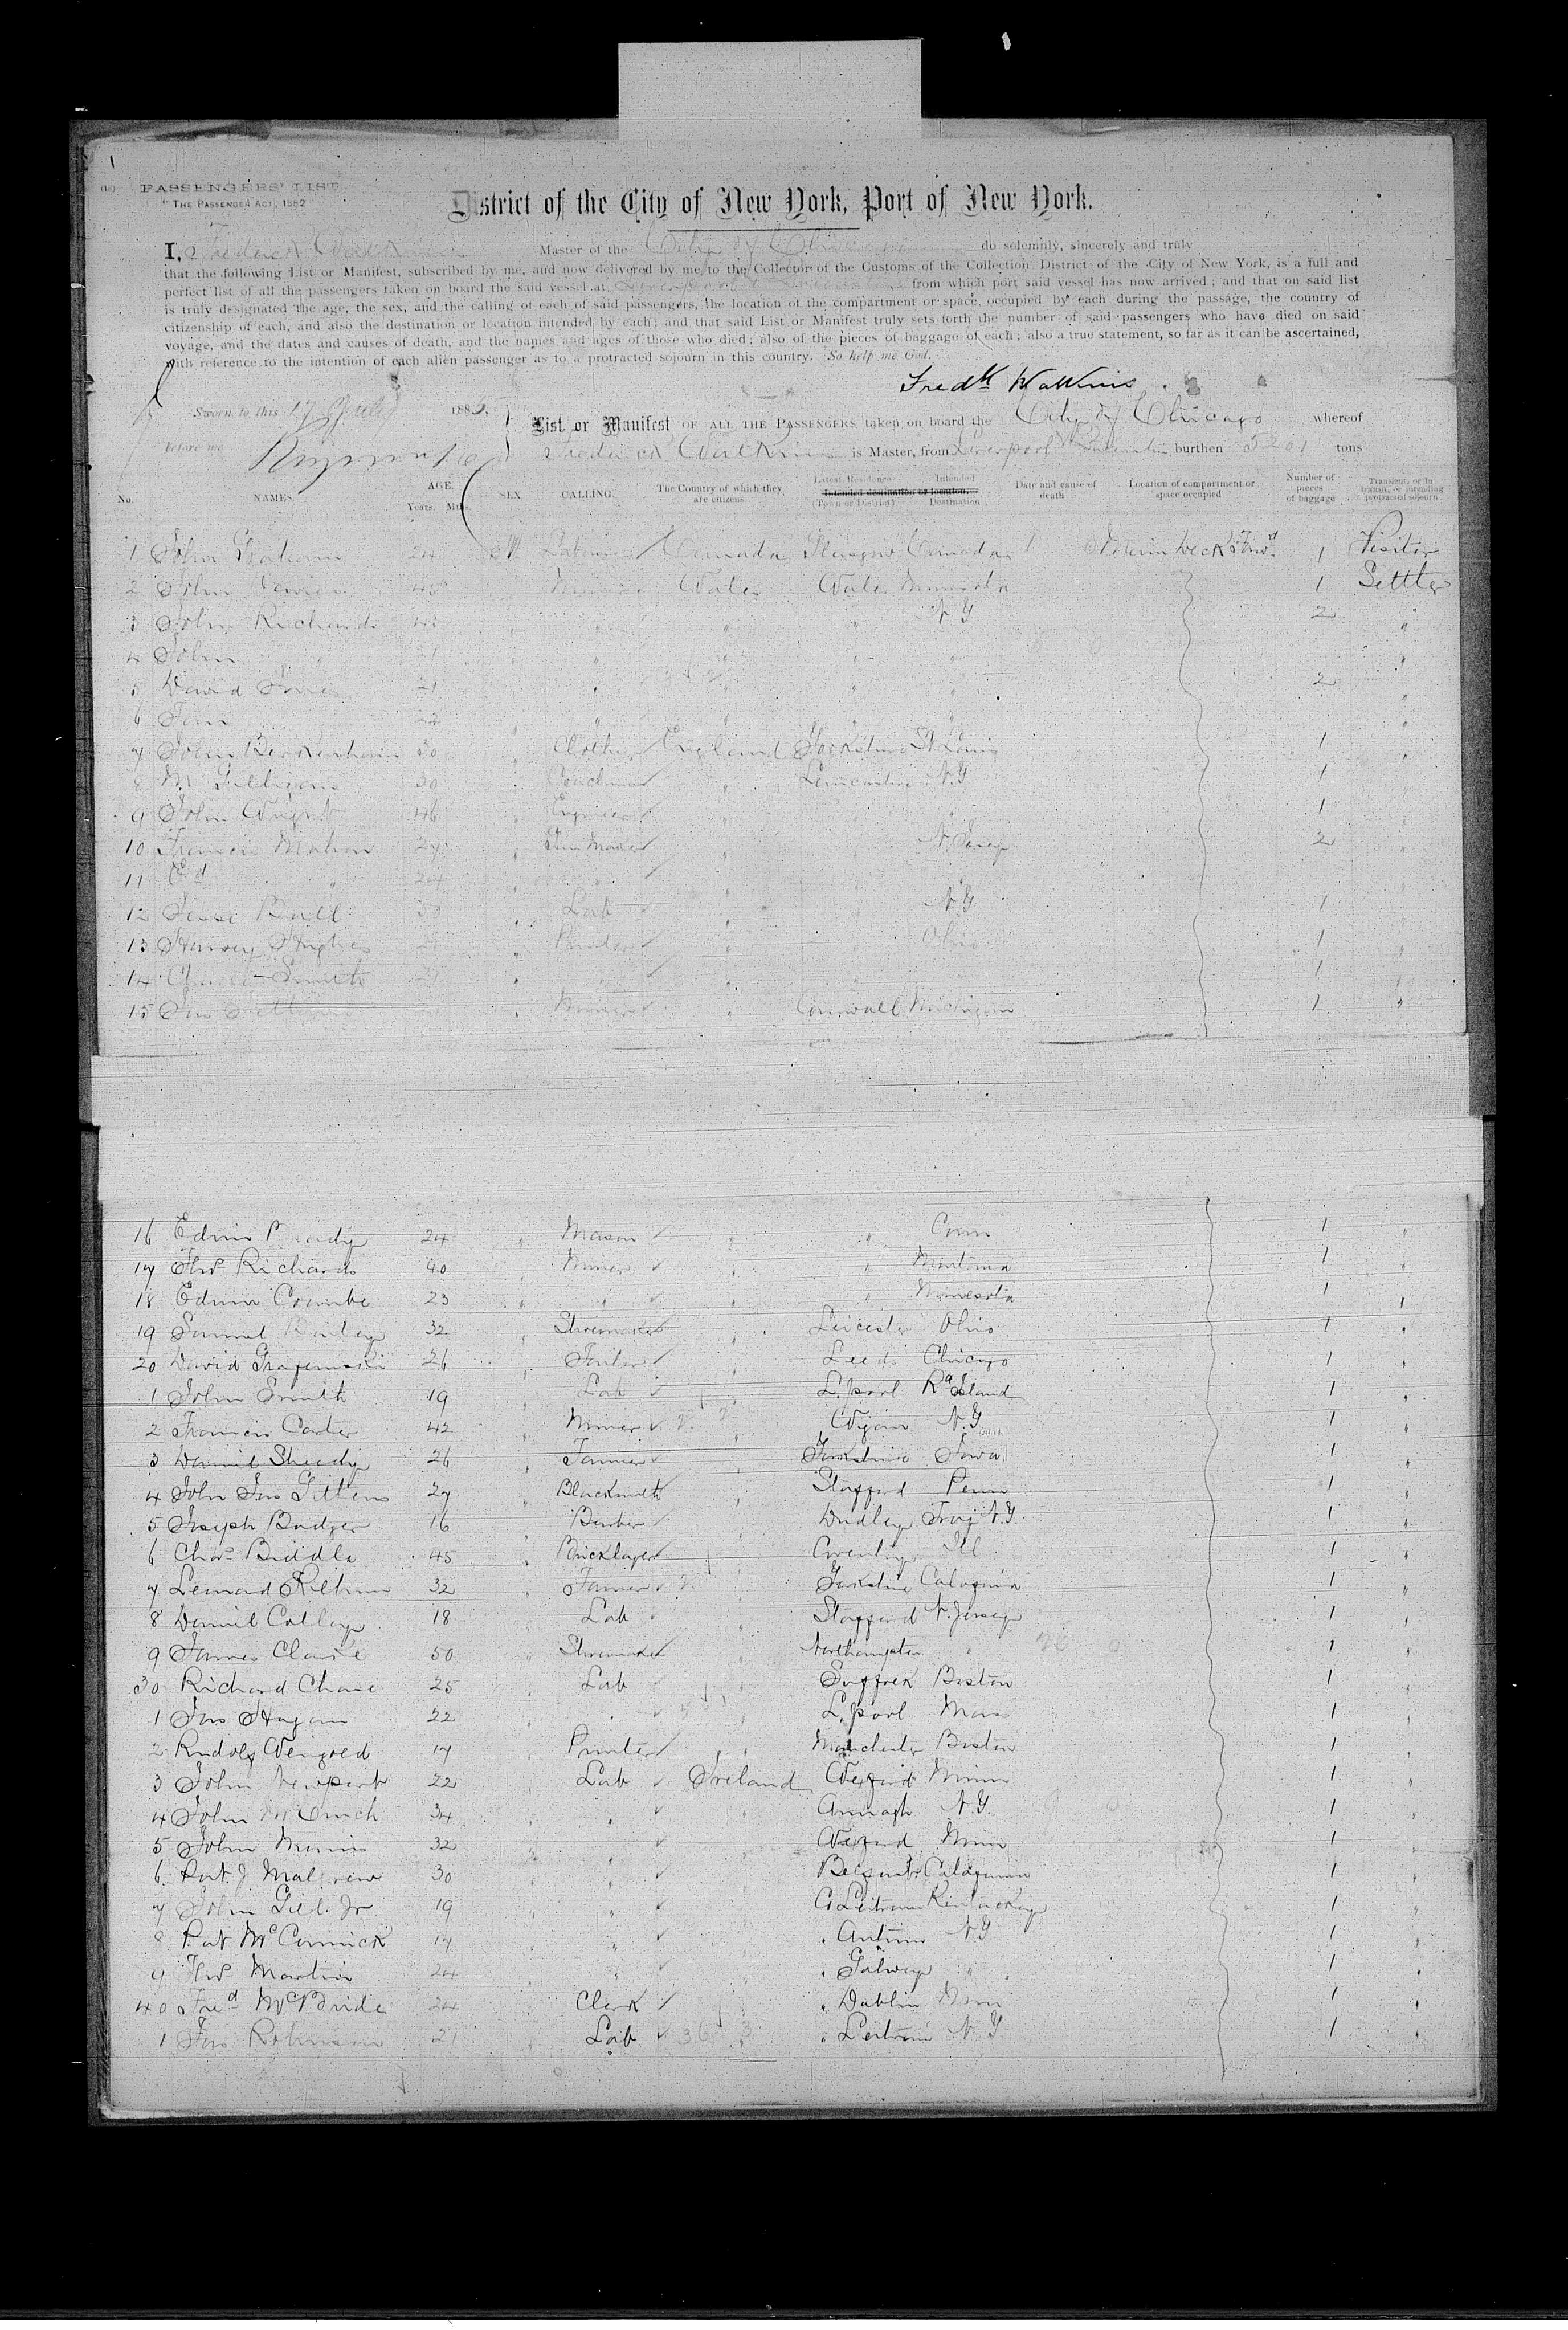 1
PASSENGERS' LIST.
THE PASSENGER ACT, 1882
District of the City of New York, Port of New York.
I, Frederick Watkins Master of the City of Chicago do solemnly, sincerely and truly
that the following List or Manifest, subscribed by me, and now delivered by me to the Collector of the Customs of the Collection District of the City of New York, is a full and
perfect list of all the passengers taken on board the said vessel at Liverpool & Queenstown from which port said vessel has now arrived; and that on said list
is truly designated the age, the sex, and the calling of each of said passengers, the location of the compartment or space occupied by each during the passage, the country of
citizenship of each, and also the destination or location intended by each; and that said List or Manifest truly sets forth the number of said passengers who have died on said
voyage, and the dates and causes of death, and the names and ages of those who died; also of the pieces of baggage of each; also a true statement, so far as it can be ascertained,
with reference to the intention of each alien passenger as to a protracted sojourn in this country. So help me God.
Fredk Watkins
Sworn to this 17 July 1885
before me
List or Manifest OF ALL THE PASSENGERS taken on board the City of Chicago whereof
Frederick Watkins is Master, from Liverpool & Queenstown burthen 5201 tons
No. NAMES. AGE. Years. Mths. SEX CALLING. The Country of which they are citizens Latest Residence (Town or District) Intended Destination Intended destination or location. Date and cause of death Location of compartment or space occupied Number of pieces of baggage Transient, or in transit, or intending protracted sojourn
1 John Graham 24 M Labourer Canada Glasgow Canada Main Deck Fwd 1 Visitor
2 John Davies 45 Miner Wales Wales Minnesota 1 Settler
3 John Richards 43 " " " N Y 2 "
4 John " 21 " " " " "
5 David Jones 21 " " " " " 2 "
6 Tom 22 " " " " " "
7 John Berkenhain 30 " Clothier England Yorkshire St Louis 1 "
8 M. Gilligan 30 " Coachman " Lancashire N.Y 1 "
9 John Wright 46 " Engineer " 1 "
10 Francis Mahon 27 " " N. Jersey 2 "
11 Ed " 24 " " " "
12 Jesse Ball 50 " Lab " N Y 1 "
13 Harvey Hughes 21 " " Ohio 1 "
14 Smith 21 " " " 1 "
15 Jas 21 " Miner " Cornwall Michigan 1 "
16 Edwin 24 " Mason " " Conn 1 "
17 Thos Richards 40 " Miner " " Montana 1 "
18 Edwin Coombe 23 " " " " Minnesota 1 "
19 Samuel Bailey 32 " Shoemaker " Leicester Ohio 1 "
20 David 26 " Tailor " Leeds Chicago 1 "
1 John Smith 19 Lab " L.pool Rd Island 1 "
2 Francis Carter 42 Miner " Wigan N.Y 1 "
3 Daniel Sheedy 26 Farmer " Yorkshire Iowa 1 "
4 John Jas Gittens 27 " Blacksmith " Stafford Penn 1 "
5 Joseph Badger 16 " Barber Dudley Troy N.Y. 1 "
6 Chas Biddle 45 " Bricklayer Coventry Ill 1 "
7 Leonard 32 " Farmer Yorkshire California 1 "
8 Daniel Colley 18 Lab Stafford N. Jersey 1 "
9 James Clarke 50 " Shoemaker Northampton " 1 "
30 Richard Chase 25 " Lab Suffolk Boston 1 "
1 Jas Hagan 22 " " L.pool Mass 1 "
2 Rudolf Weigold 17 Printer " Manchester Boston 1 "
3 John Newport 22 " Lab Ireland Wexford Minn 1 "
4 John 34 " " " Armagh N.Y. 1 "
5 John Morris 32 " " " Wexford Minn 1 "
6 Pat. J Malgrew 30 " " " California 1 "
7 John Gill. Jr 19 " " Co Leitrim Kentucky 1 "
8 Pat McCormick 17 " " " Antrim N Y 1 "
9 Thos Martin 24 " " " " Galway " 1 "
40 Fred McBride 24 Clerk " Dublin Minn 1 "
1 Jas Robinson 21 " Lab 36 3 " Leitrim N Y 1 "